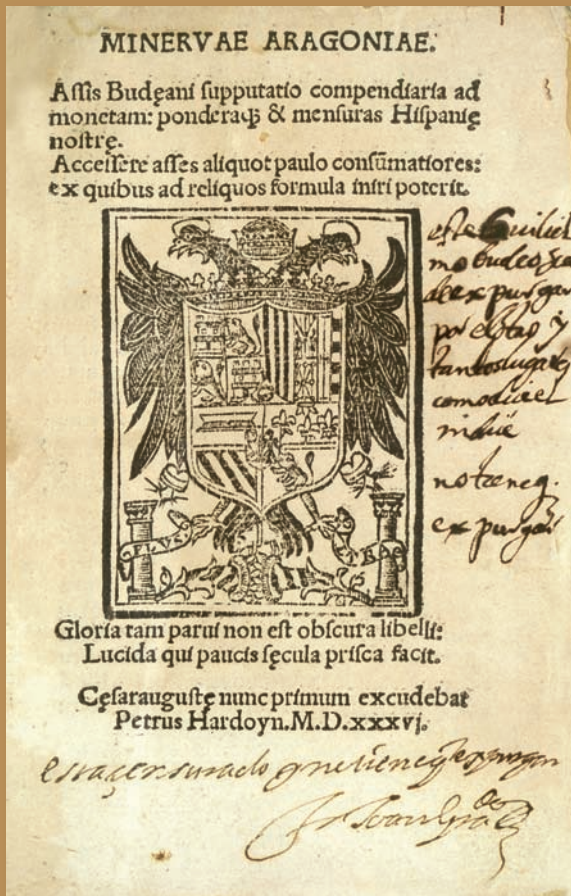 MINERVAE ARAGONIAE.
Assis Budęani supputatio compendiaria ad
monetam: ponderaqꝫ & mensuras Hispanię
nostrę.
Accessere asses aliquot paulo consũmatiores:
ex quibus ad reliquos formula iniri poterit.
PLVS
VLTRA
este Guiliel
mo budeo
de expurgar
por
tantos lugares
como dice el
no tiene q.
expurgar
Gloria tam parui non est obscura libelli:
Lucida qui paucis sęcula prisca facit.
Cęsaraugustę nunc primum excudebat
Petrus Hardoyn.M.D.xxxvj.
esta censurado q tiene q expurgar